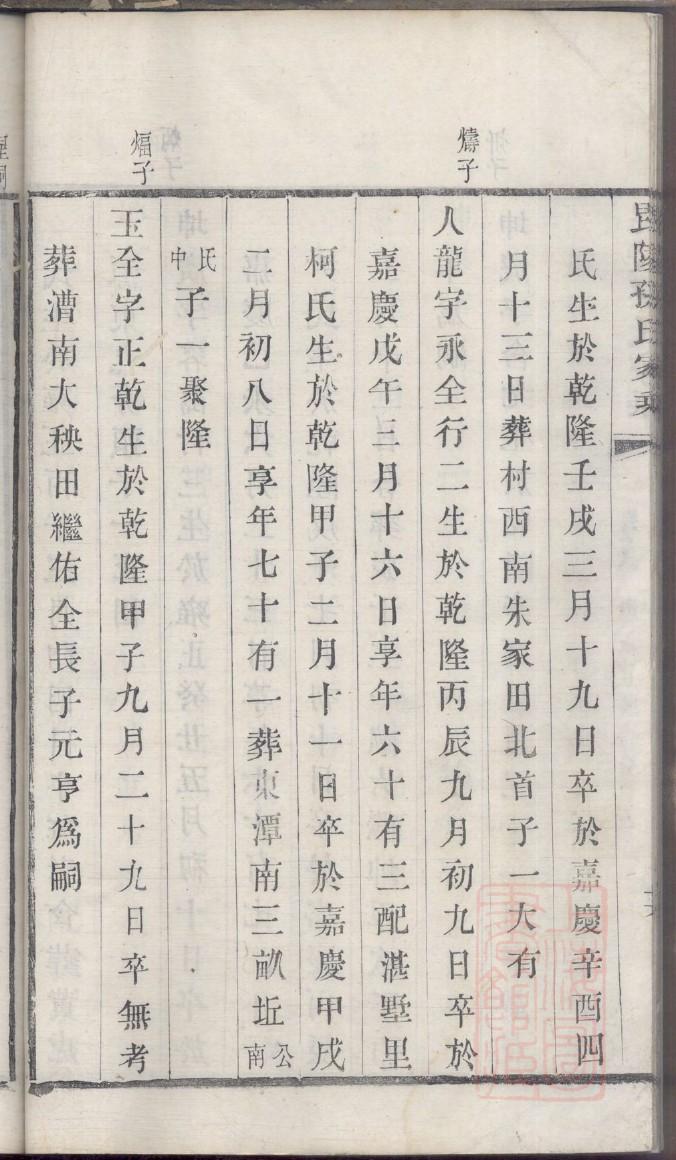 暨陽孫氏家乘
氏生於乾隆壬戌三月十九日卒於嘉慶辛酉四
月十三日葬村西南朱家田北首子一大有
燽子
人龍字永全行二生於乾隆丙辰九月初九日卒於
嘉慶戊午三月十六日享年六十有三配湛墅里
柯氏生於乾隆甲子二月十一日卒於嘉慶甲戌
二月初八日享年七十有一葬東潭南三畝坵公南
氏中子一聚隆
煏子
玉全字正乾生於乾隆甲子九月二十九日卒無考
葬漕南大秧田繼佑全長子元亨爲嗣